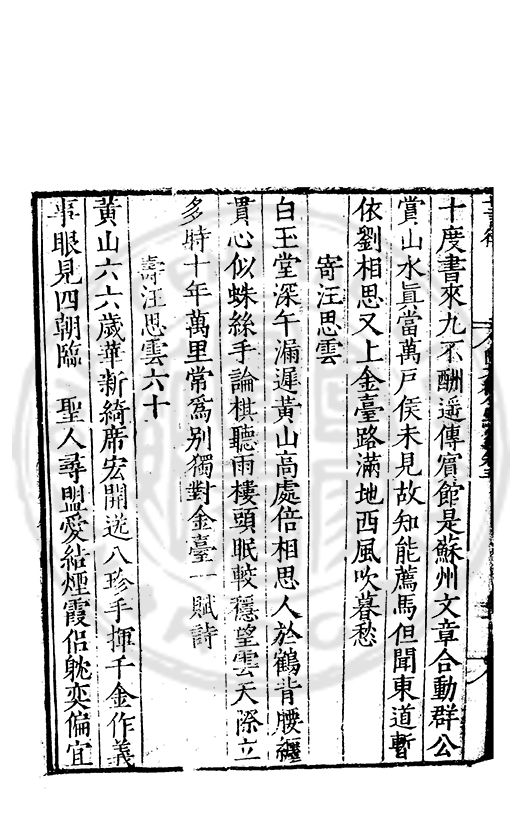 十度書來九不酬遥傳賓館是蘇州文章合動群公
賞山水眞當萬戸侯未見故知能薦馬但聞東道暫
依劉相思又上金臺路滿地西風吹暮愁
寄汪思雲
白玉堂深午漏遲黃山高處倍相思人於鶴背腰纏
貫心似蛛絲手論棋聽雨樓頭眠較穩望雲天際立
多時十年萬里常爲別獨對金臺一賦詩
壽汪思雲六十
黃山六六歲華新綺席宏開送八珍手揮千金作義
事眼見四朝臨 聖人尋盟愛結煙霞侶躭奕偏宜